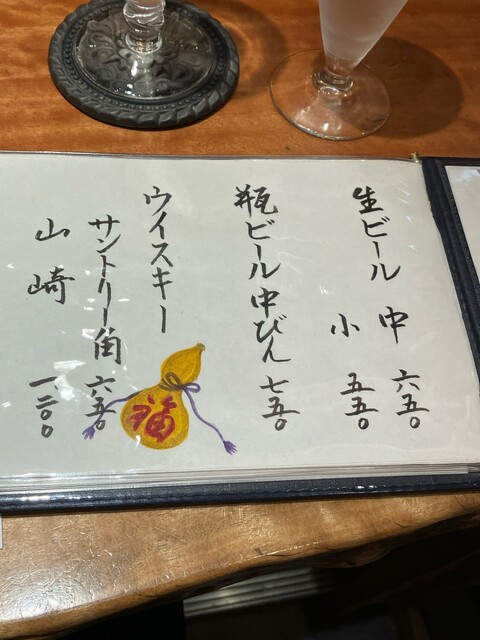 生ビール 中 六五〇
小 五五〇
瓶ビール中びん 七五〇
ウイスキー
サントリー角 六五〇
山崎 一二〇〇
福